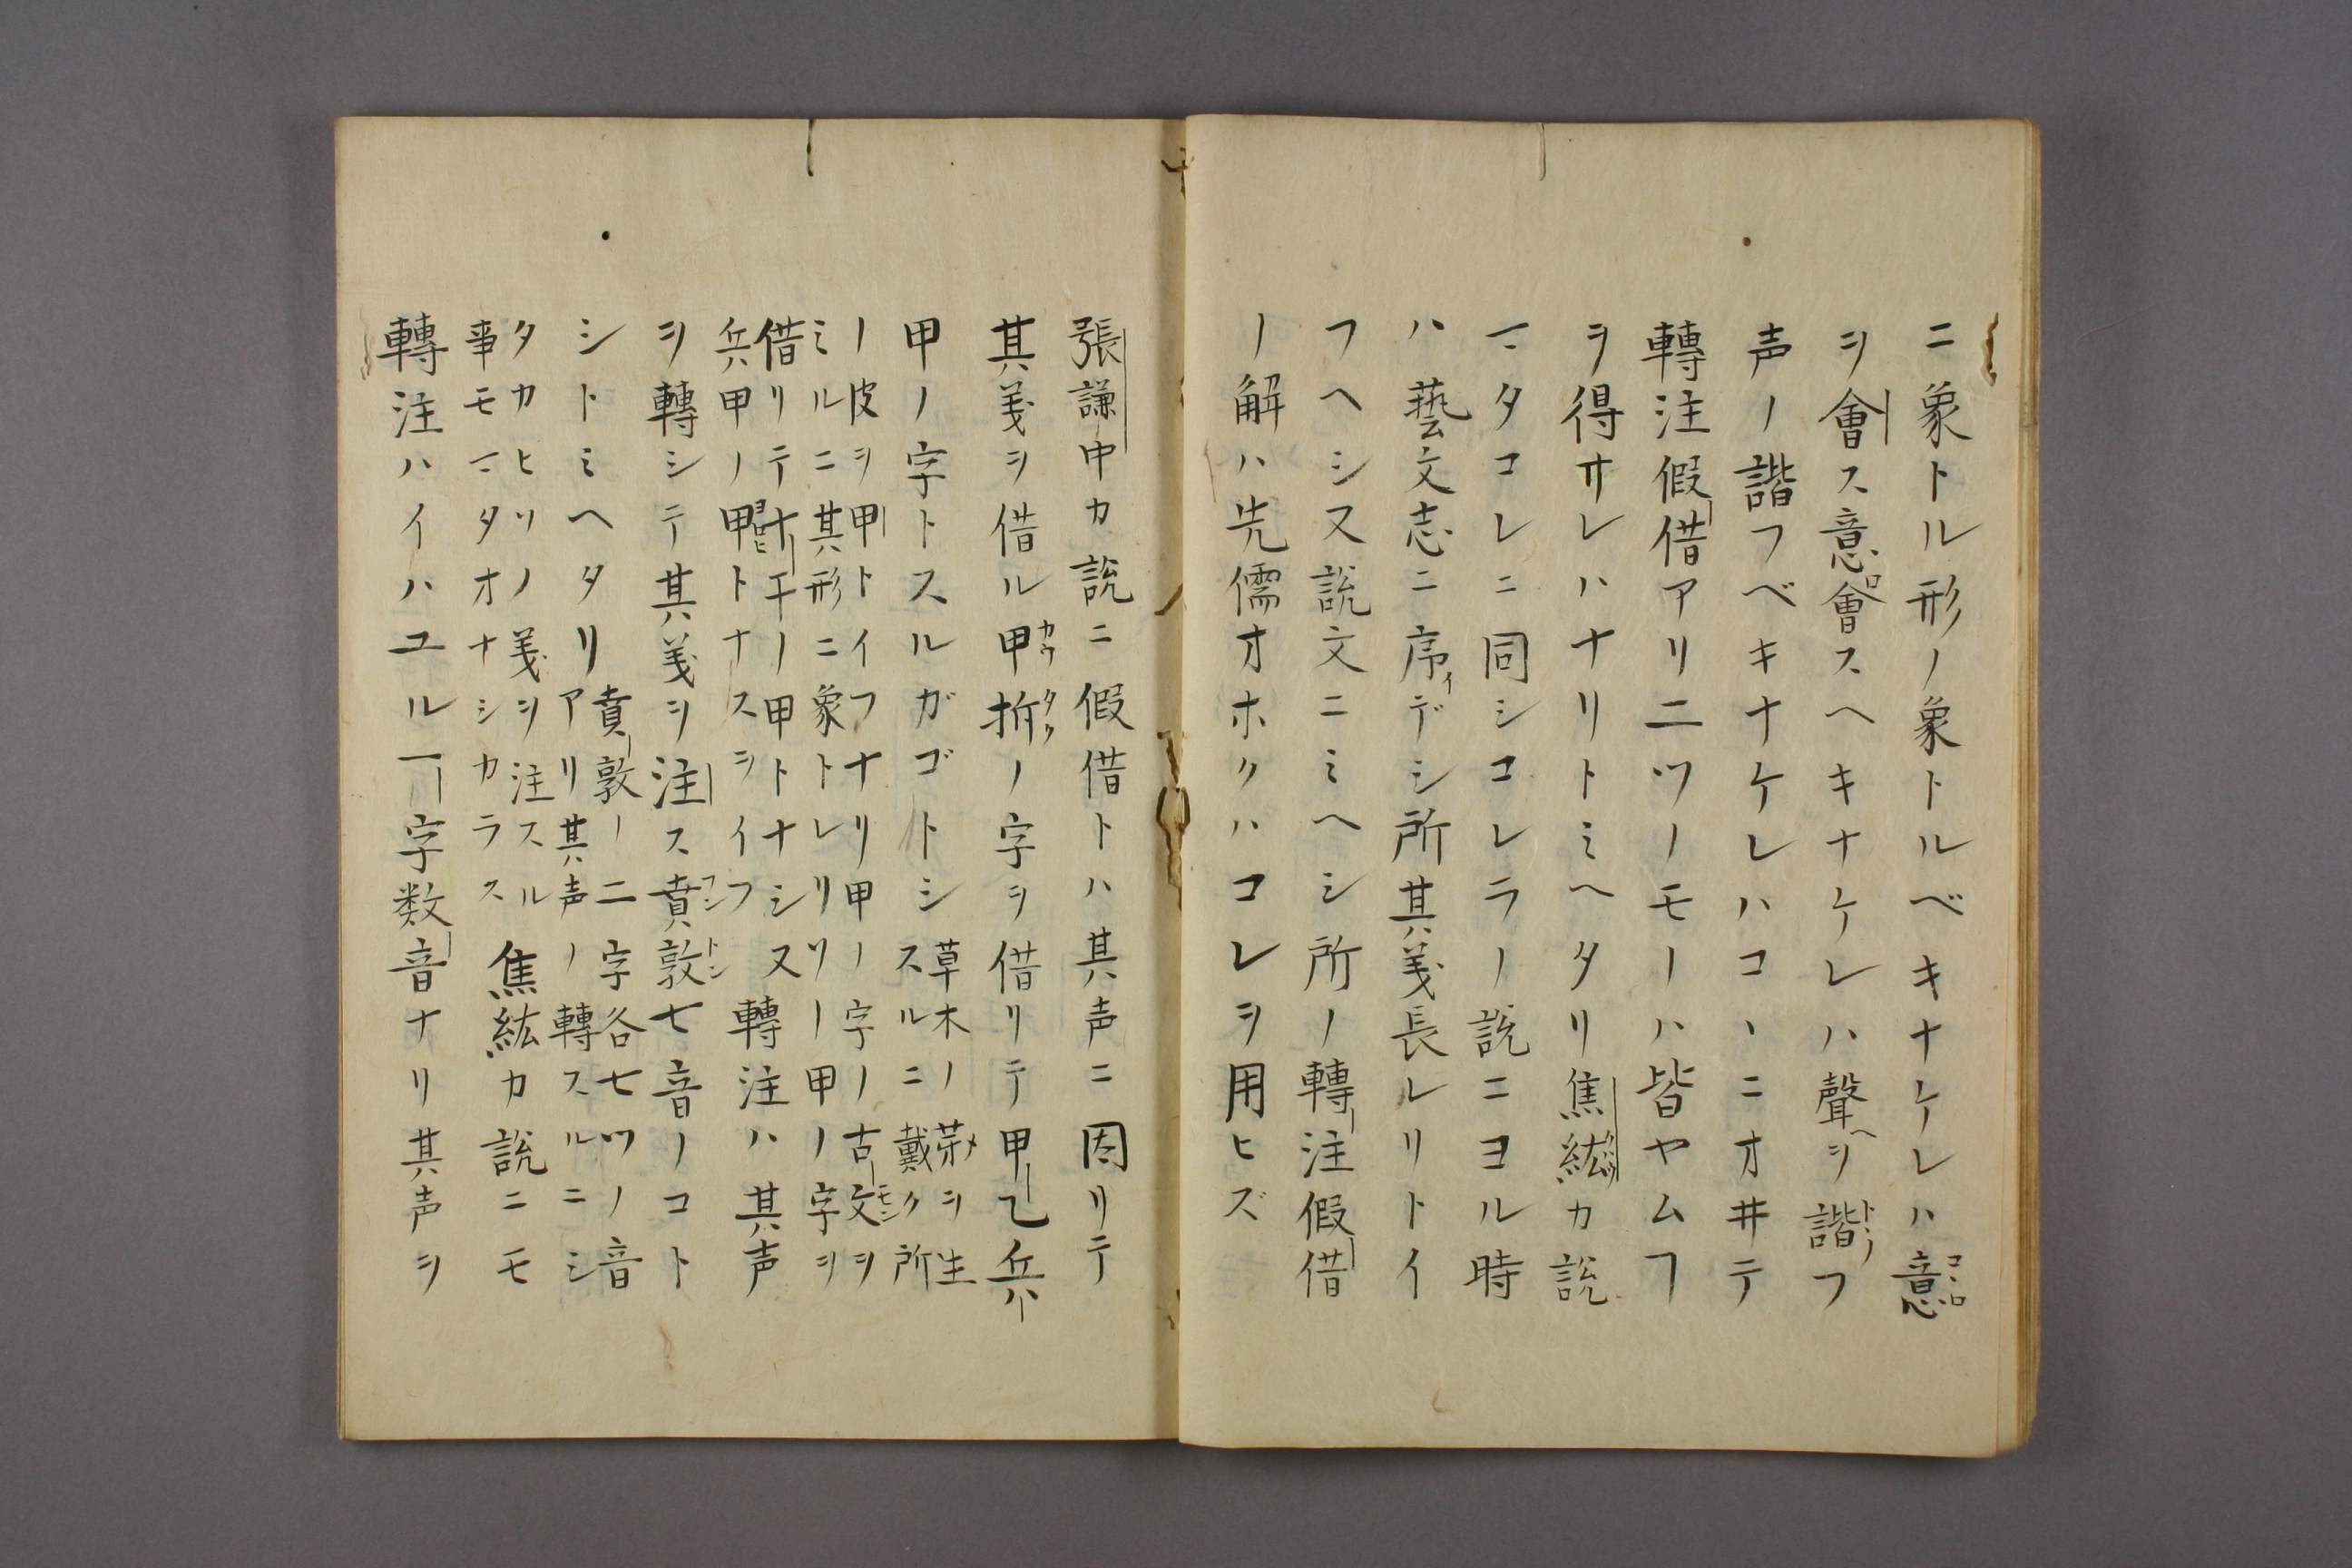 ニ象トル形ノ象トルベキナケレハ意
ヲ會ス意會スヘキナケレハ聲ヲ諧フ
声ノ諧フベキナケレハコヽニオヰテ
轉注假借アリ二ツノモノハ皆ヤムヿ
ヲ得サレハナリトミヘタリ焦紘カ説
マタコレニ同シコレラノ説ニヨル時
ハ藝文志ニ序デシ所其義長レリトイ
フヘシ又説文ニミヘシ所ノ轉注假借
ノ解ハ先儒オホクハコレヲ用ヒズ
張謙中カ説ニ假借トハ其声ニ因リテ
其義ヲ借ル甲拆ノ字ヲ借リテ甲乙兵ハ
甲ノ字トスルガゴトシ
草木ノ芽ヲ生
スルニ戴ク所
ノ皮ヲ甲トイフナリ甲ノ字ノ古文ヲ
ミルニ其形ニ象トレリソノ甲ノ字ヲ
借リテ十干ノ甲トナシ又
兵甲ノ甲トナスヲイフ
轉注ハ其声
ヲ轉シテ其義ヲ注ス賁敦七音ノコト
シトミヘタリ
賁敦ノ二字各七ツノ音
アリ其声ノ轉スルニシ
タカヒソノ義ヲ注スル
事モマタオナシカラス
焦紘カ説ニモ
轉注ハイハユル一字数音ナリ其声ヲ